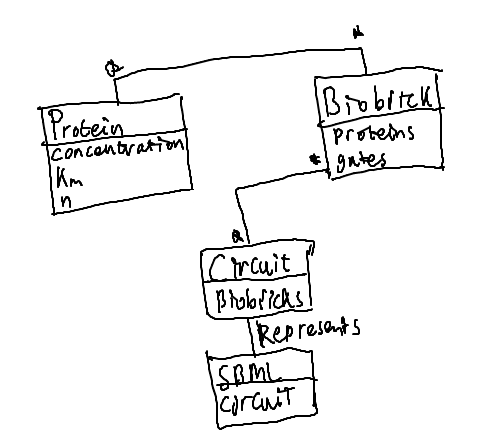 Protein
concentration
Km
n
Biobrick
proteins
gates
*
Circuit
Biobricks
Represents
SBML
circuit